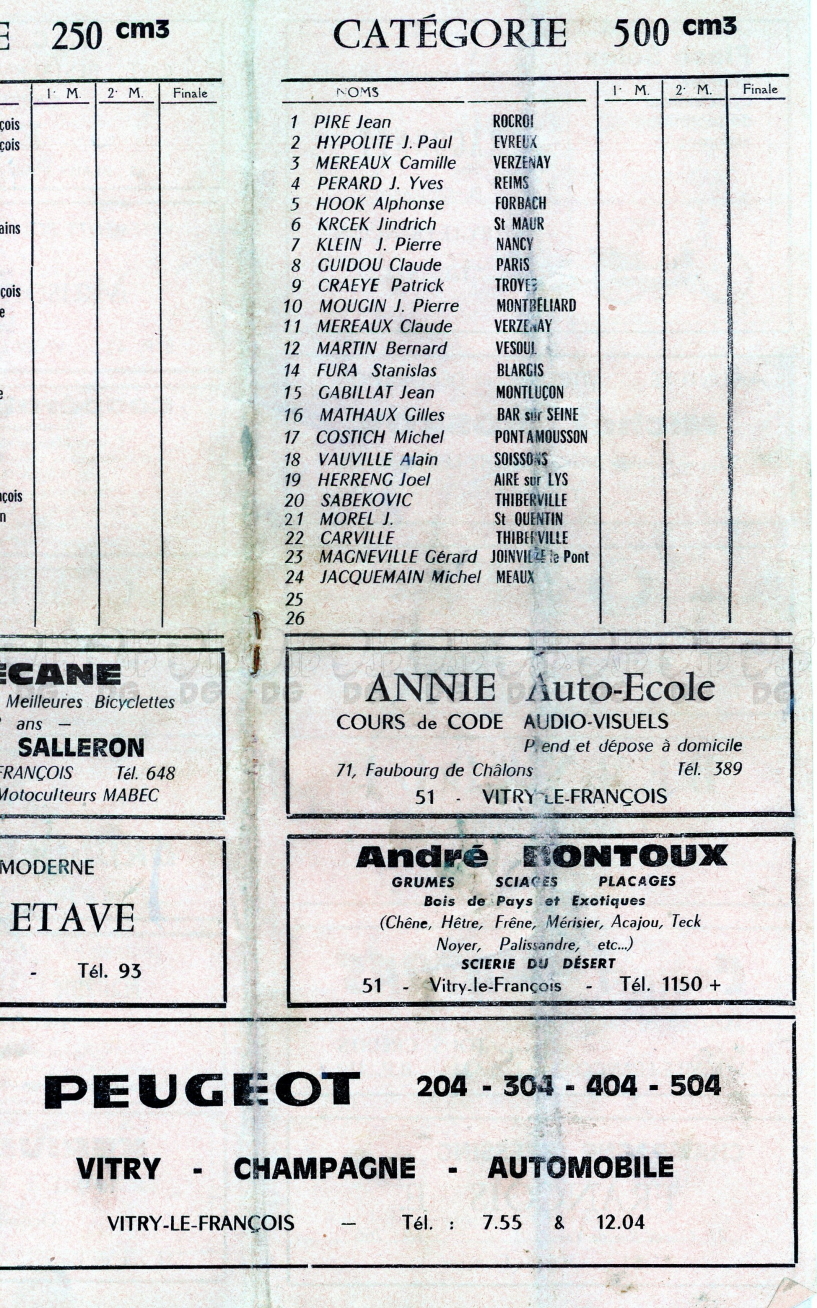 E 250 cm3
1· M. 2· M. Finale
çois
çois
ains
çois
e
e
nçois
n
ÉCANE
Meilleures Bicyclettes
ans —
SALLERON
FRANÇOIS Tél. 648
Motoculteurs MABEC
MODERNE
ETAVE
- Tél. 93
CATÉGORIE 500 cm3
NOMS 1· M. 2· M. Finale
1 PIRE Jean ROCROI
2 HYPOLITE J. Paul EVREUX
3 MEREAUX Camille VERZENAY
4 PERARD J. Yves REIMS
5 HOOK Alphonse FORBACH
6 KRCEK Jindrich St MAUR
7 KLEIN J. Pierre NANCY
8 GUIDOU Claude PARIS
9 CRAEYE Patrick TROYES
10 MOUGIN J. Pierre MONTBÉLIARD
11 MEREAUX Claude VERZENAY
12 MARTIN Bernard VESOUL
14 FURA Stanislas BLARGIS
15 GABILLAT Jean MONTLUÇON
16 MATHAUX Gilles BAR sur SEINE
17 COSTICH Michel PONT A MOUSSON
18 VAUVILLE Alain SOISSONS
19 HERRENG Joel AIRE sur LYS
20 SABEKOVIC THIBERVILLE
21 MOREL J. St QUENTIN
22 CARVILLE THIBERVILLE
23 MAGNEVILLE Gérard JOINVILLE le Pont
24 JACQUEMAIN Michel MEAUX
25
26
ANNIE Auto-Ecole
COURS de CODE AUDIO-VISUELS
Prend et dépose à domicile
71, Faubourg de Châlons Tél. 389
51 - VITRY-LE-FRANÇOIS
André BONTOUX
GRUMES SCIAGES PLACAGES
Bois de Pays et Exotiques
(Chêne, Hêtre, Frêne, Mérisier, Acajou, Teck
Noyer, Palissandre, etc...)
SCIERIE DU DÉSERT
51 - Vitry-le-François - Tél. 1150 +
PEUGEOT 204 - 304 - 404 - 504
VITRY - CHAMPAGNE - AUTOMOBILE
VITRY-LE-FRANÇOIS — Tél. : 7.55 & 12.04